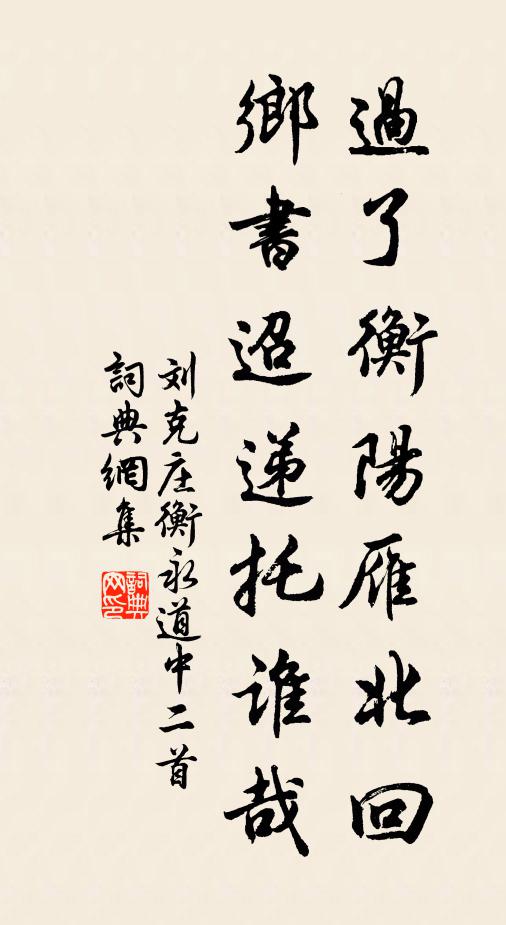 過了衡陽雁北回
鄉書迢递托誰哉
刘克庄衡永道中二首
詞典網集
詞典
网印